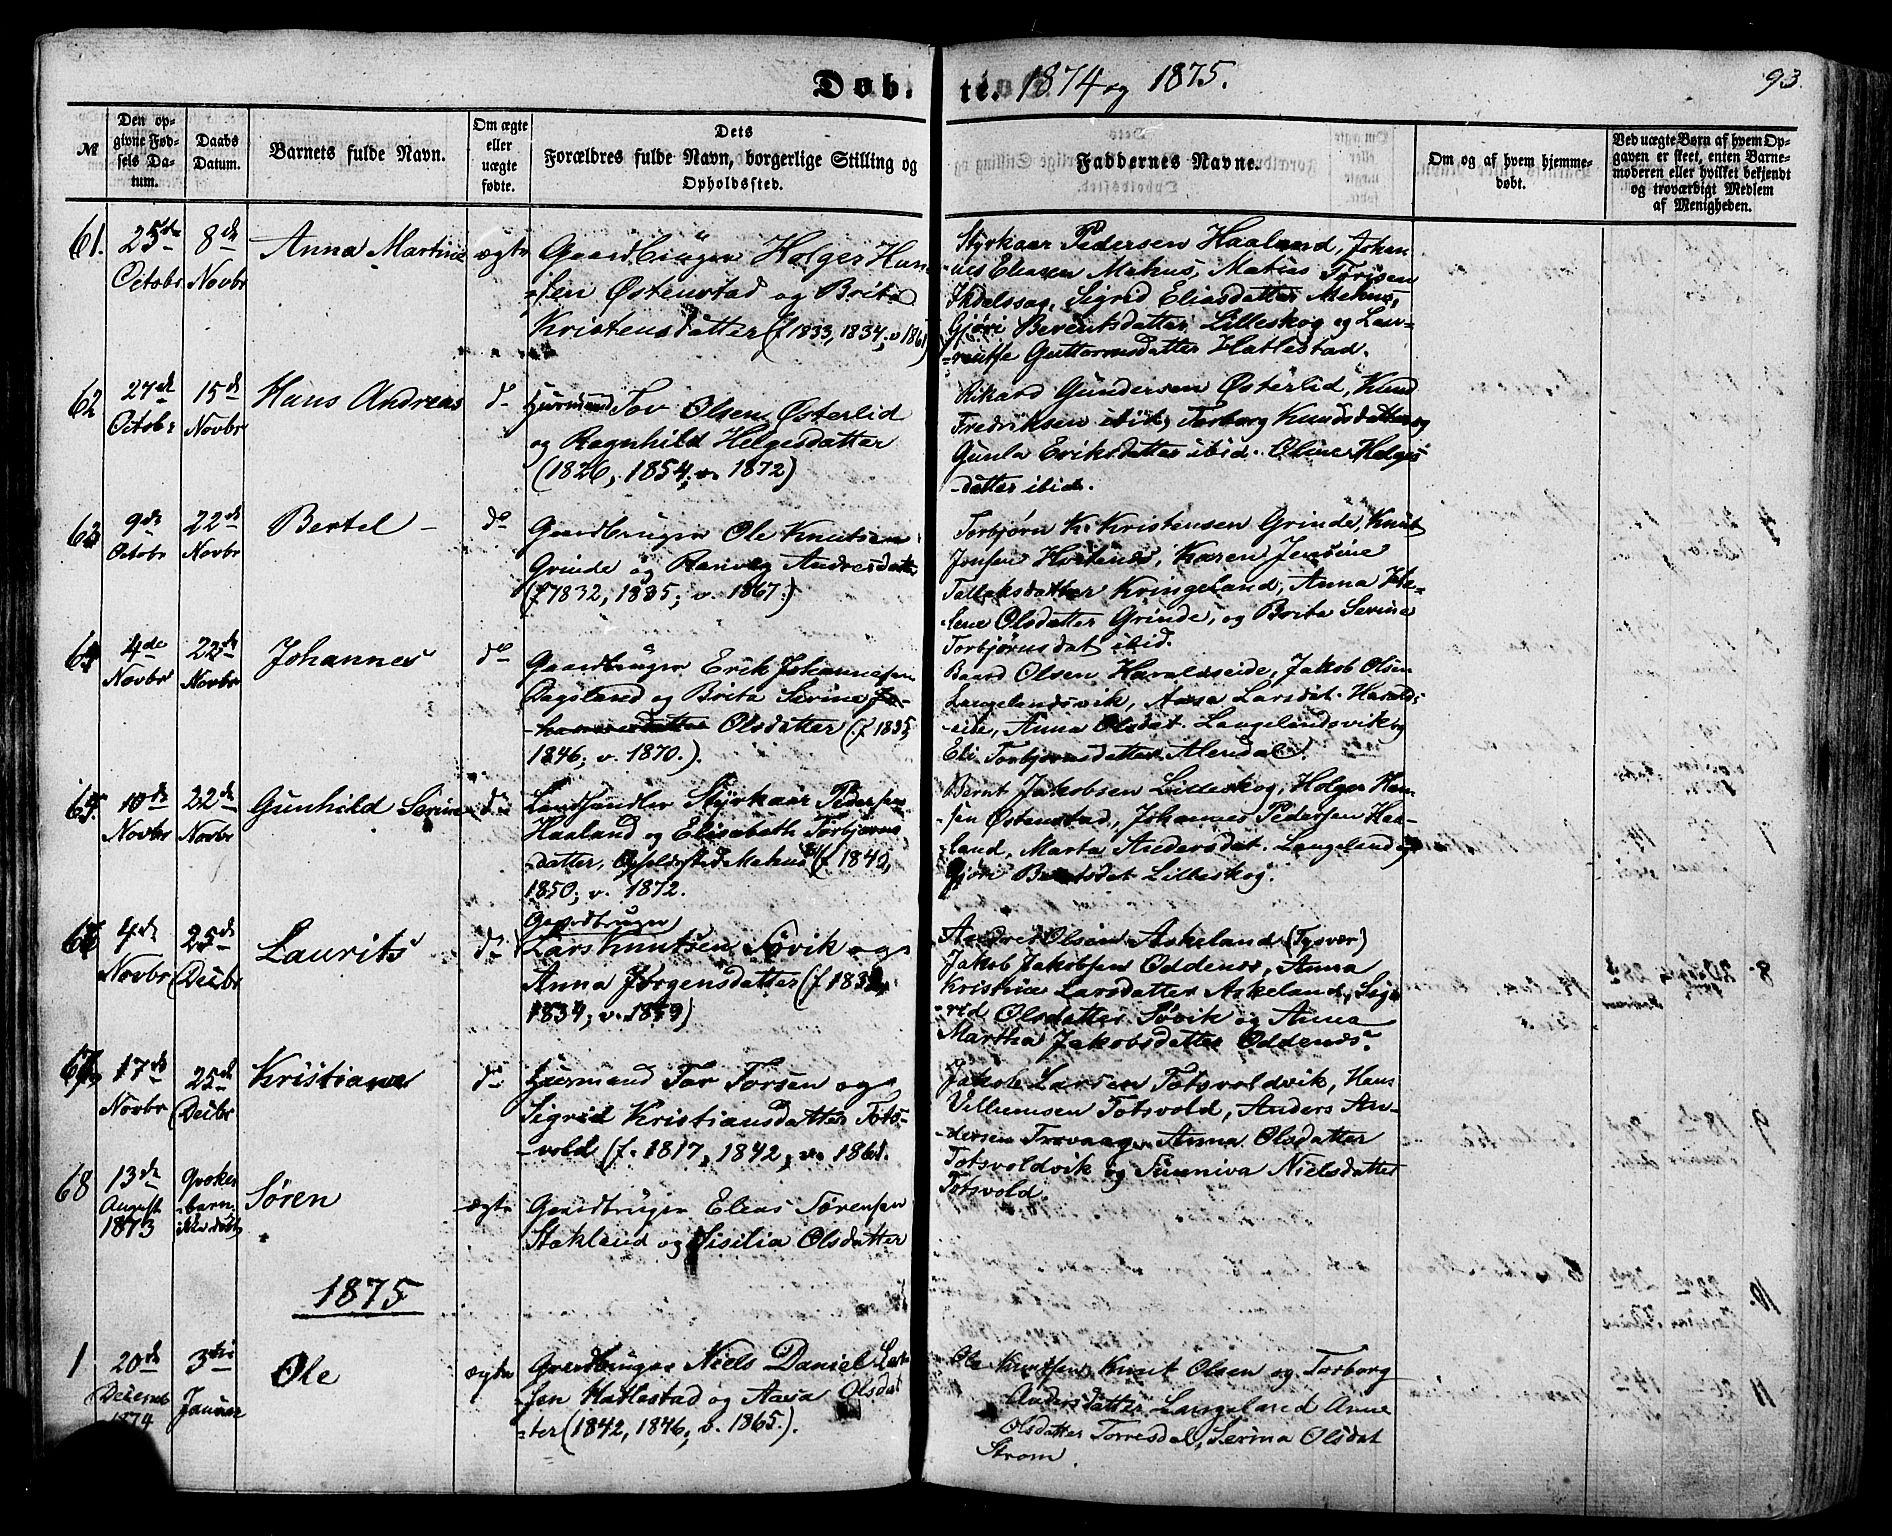 Døb- te. 1874 og 1875. 93.
№
Den op-
givne Fød-
sels Da-
tum.
Daabs
Datum.
Barnets fulde Navn.
Om ægte
eller
uægte
fødte.
Dets
Forældres fulde Navn, borgerlige Stilling og
Opholdssted.
Faddernes Navne.
Om og af hvem hjemme-
døbt.
Ved uægte Børn af hvem Op-
gaven er skeet, enten Barne-
moderen eller hvilket bekjendt
og troværdigt Medlem
af Menigheden.
61. 25de Octobr 8de Novbr Anna Martine ægte
Gaardbruger Holger Han-
-sen Østenstad og Brita
Kristensdatter (f 1833, 1834; v 1861)
Styrkaar Pedersen Haaland, Johan-
nes Eliasen Mehus, Matias
Sigrid Eliasdatter Mehus,
Gjøri Berentsdatter Lilleskog og Lau-
Guttormsdatter Hatlestad.
62 27de Octobr 15de Novbr Hans Andreas do
Huusmand Tov Olsen Østerlid
og Ragnhild Helgesdatter
(1826, 1854; v. 1872)
Rikard Gundersen Østerlid, Knud
Fredriksen ibid, Torborg Knudsdatter og
Gunla Eriksdatter ibid. Oline Helgis-
-datter ibid.
63 9de Octobr 22de Novbr Bertel - do
Gaardbruger Ole Knutsen
Grinde og Ranveg Andresdatter
(f 1832, 1835; v. 1867.)
Torbjørn K. Kristensen Grinde, Knut
Jensen Karen Jensine
Tallaksdatter Kringeland, Anna He-
-lene Olsdatter Grinde, og Brita Serine
Torbjørnsdat ibid.
64 4de Novbr 22de Novbr Johannes do
Gaardbruger Erik Johannesen
Dagsland og Brita Serine Jo-
-hannesdatter Olsdatter (f 1835,
1846; v. 1870.)
Baard Olsen Haraldseide, Jakob Olsen
Langelandsvik, Aasa Larsdat. Haralds-
eide, Anna Olsdat. Langelandsvik og
Eli Torbjørnsdatter Alendal.
65. 10de Novbr 22de Novbr Gunhild Serine do
Landhandler Styrkaar Pedersen
Haaland og Elisabeth Torbjørns-
-datter, Opholdssted Mehus (f 1842,
1850; v. 1872.
Bernt Jakobsen Lilleskog, Holger Han-
-sen Østenstad, Johannes Pedersen Haa-
-land, Marta Andersdat. Langeland og
Gjøri Berntsdat Lilleskog.
66 4de Novbr 25de Decbr Laurits do
Gaardbruger
Lars Knutsen Søvik og
Anna Jørgensdatter (f 1832,
1834; v. 1859)
Andres Olsen Askeland (Tysvær)
Jakob Jakobsen Oddenes, Anna
Kristine Larsdatter Askeland, Sig-
rid Olsdatter Søvik og Anna
Martha Jakobsdatter Oddenes.
67 17de Novbr 25de Decbr Kristiane do
Huusmand Tov Torsen og
Sigrid Kristiansdatter Tots-
-vold (f. 1817, 1842, v. 1861.
Jakob Larsen Totsvoldvik, Hans
Villumsen Totsvold, Anders An-
-dersen Trovaag, Anna Olsdatter
Totsvoldvik og Sunniva Nielsdatter
Totsvold.
68 13de August 1873 Qvæker-
-barn,
ikke døbt
Søren ægte
Gaardbruger Elias Sørensen
Stakland og Sisilia Olsdatter
1875
1 20de Decemb 1874 3die Januar Ole ægte
Gaardbruger Niels Daniel Lar-
sen Hatlestad og Aasa Olsdat-
-ter (1842, 1846, v. 1865.)
Ole Knutsen, Knut Olsen og Torborg
Andersdatter Langeland Anne
Olsdatter Torresdal, Serina Olsdat
Strøm.